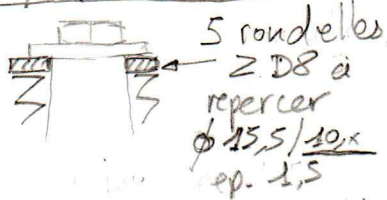 5 rondelles
Z D8 à
repercer
ϕ 15,5/10,x
ep. 1,5